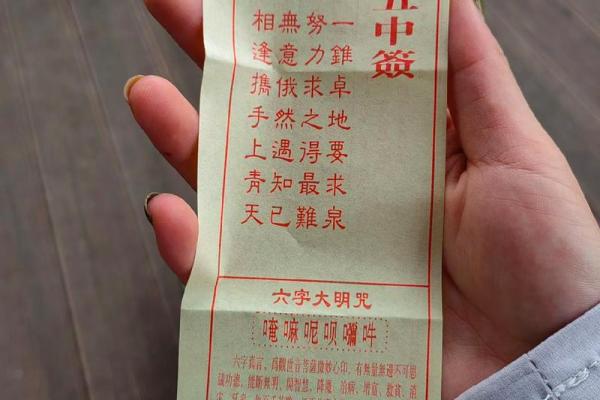 中簽
一錐卓地要求泉
努力求之得最難
無意俄然遇知已
相逢攜手上青天
六字大明咒
唵嘛呢呗吽
六字真言，為觀世音菩薩微妙心印，有無量無邊不可思
議功德，能斷無明、開智慧、降魔、治病、增富、救貧、消